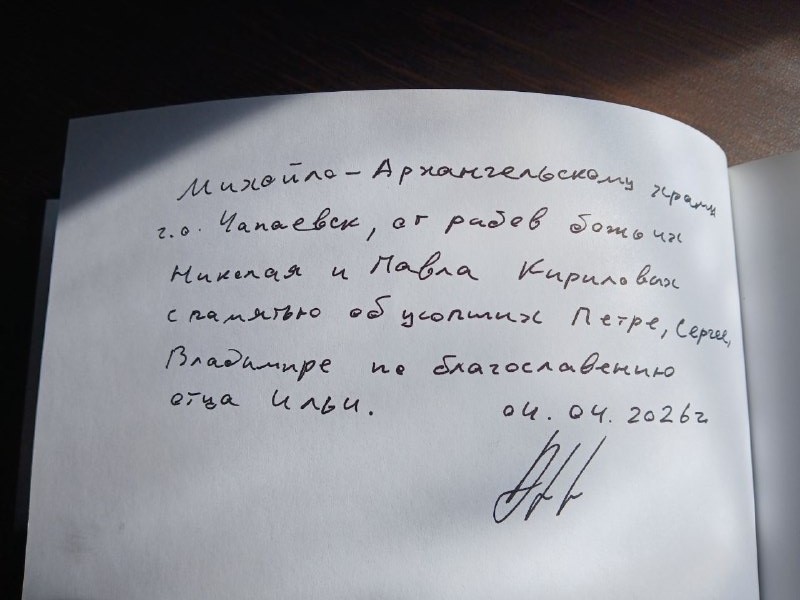 Михайло-Архангельскому храму
г.о. Чапаевск, от рабов божьих
Николая и Павла Кириловых
с памятью об усопших Петре, Сергее,
Владимире по благославению
отца Ильи. 04.04.2026г